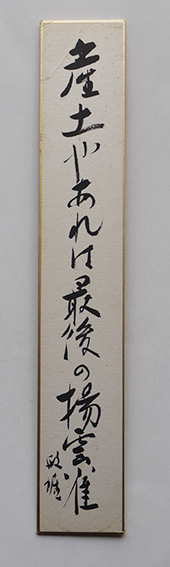 産土やあれは最後の揚雲雀